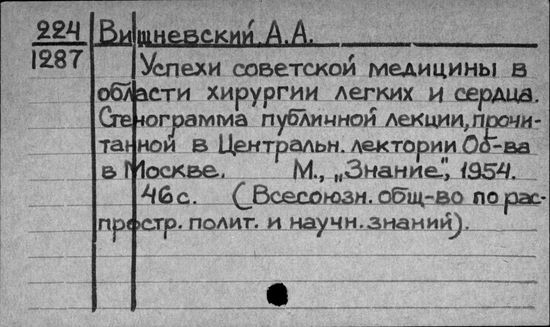 224 Вишневский А.А.
1287
Успехи советской медицины в
области хирургии легких и сердца.
Стенограмма публичной лекции, прочи-
танной в Центральн. лектории Об-ва
в Москве. М., „Знание", 1954.
46 с. (Всесоюзн. общ-во по рас-
простр. полит. и научн. знаний).